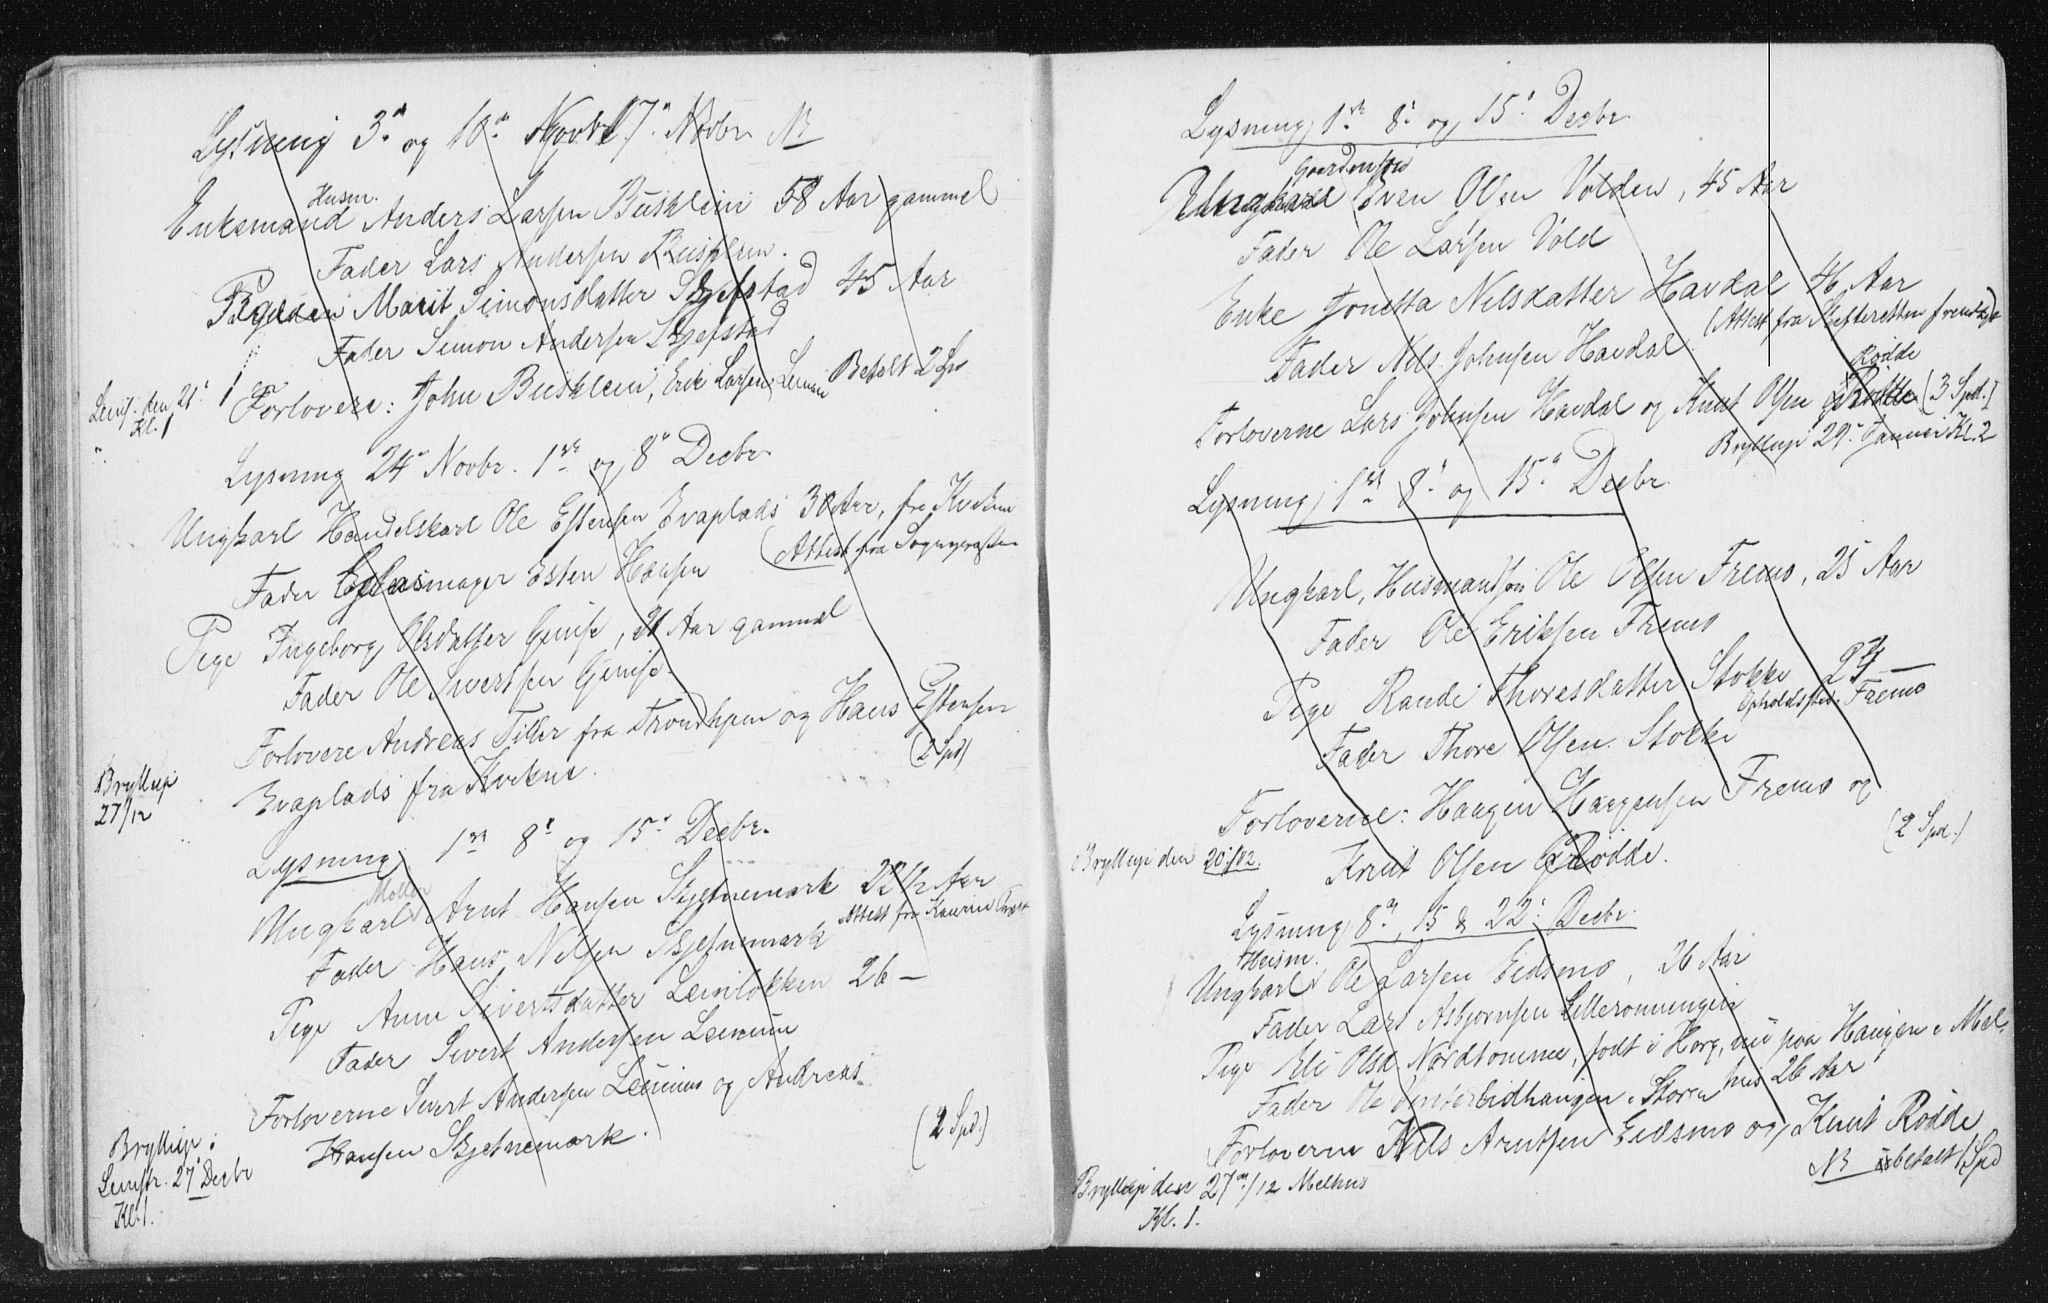 Lysning 3die og 10de Novbr 17de Novbr. NB
Husm.
Enkemand Anders Larsen Bushlein 58 Aar gammel
Fader Lars Andersen Bushlein.
Pigen Marit Simonsdatter Skjefstad 45 Aar
Fader Simon Andersen Skjefstad
Forlovere: John Bushlein, Erik Larsen Leinan Betalt 2 Spd
den 21de
Kl. 1
Lysning 24de Novbr. 1ste og 8de Decbr.
Ungkarl Handelskarl Ole Estensen Evaplads 30 Aar, fra Kvikne
(Attest fra Sognepresten
Fader Esten Hansen
Pige Ingeborg Olsdatter Gimse, 31 Aar gammel
Fader Ole Sivertsen Gimse.
Forlovere Andreas Tiller fra Trondhjem og Hans Estensen
Evaplads fra Kvikne.
(2 Spd)
Bryllup
27/12
Lysning 1ste 8de og 15de Decbr.
Møller
Ungkarl Arnt Hansen Skjetnemark 22 1/2 Aar
Attest fra
Fader Hans Nilsen Skjetnemark
Pige Anne Sivertsdatter Leinløkken 26 —
Fader Sivert Andersen Leinum
Forloverne Sivert Andersen Leinum og Andreas
Hansen Skjetnemark.
(2 Spd.)
Bryllup:
Leinstr. 27de Decbr
Kl. 1.
Lysning, 1ste 8de og 15de Decbr.
Gaardmand
Ungkarl Even Olsen Volden, 45 Aar
Fader Ole Larsen Vold
Enke Jonetta Nilsdatter Havdal 46 Aar
(Attest fra Skifteretten fremlagt
Fader Nils Johnsen Havdal
Rødde
Forloverne Lars Johnsen Havdal og Knut Olsen (3 Spd.)
Bryllup 29de Januar Kl. 2
Lysning, 1ste 8de og 15de Decbr.
Ungkarl, Husmandsøn Ole Olsen Fremo, 25 Aar
Fader Ole Eriksen Fremo
Pige Randi Thoresdatter Stokke 24 —
Opholdssted Fremo
Fader Thore Olsen Stokke
Forloverne: Haagen Haagensen Fremo og
Knut Olsen Rødde.
(2 Spd.)
Bryllup den 20de/12.
Lysning 8de, 15 & 22de Decbr.
Husm.
Ungkarl Ole Larsen Eidsmo, 26 Aar
Fader Lars Asbjørnsen Lillerønningen
Pige Eli Olsd. Nordtømme, født i Horg, nu paa Haugen i Mel-
hus 26 Aar
Fader Ole i Støren
Forloverne Nils Arntsen Eidsmo og Knut Rødde
NB betalt 1 Spd
Bryllup den 27de/12 Melhus
Kl. 1.